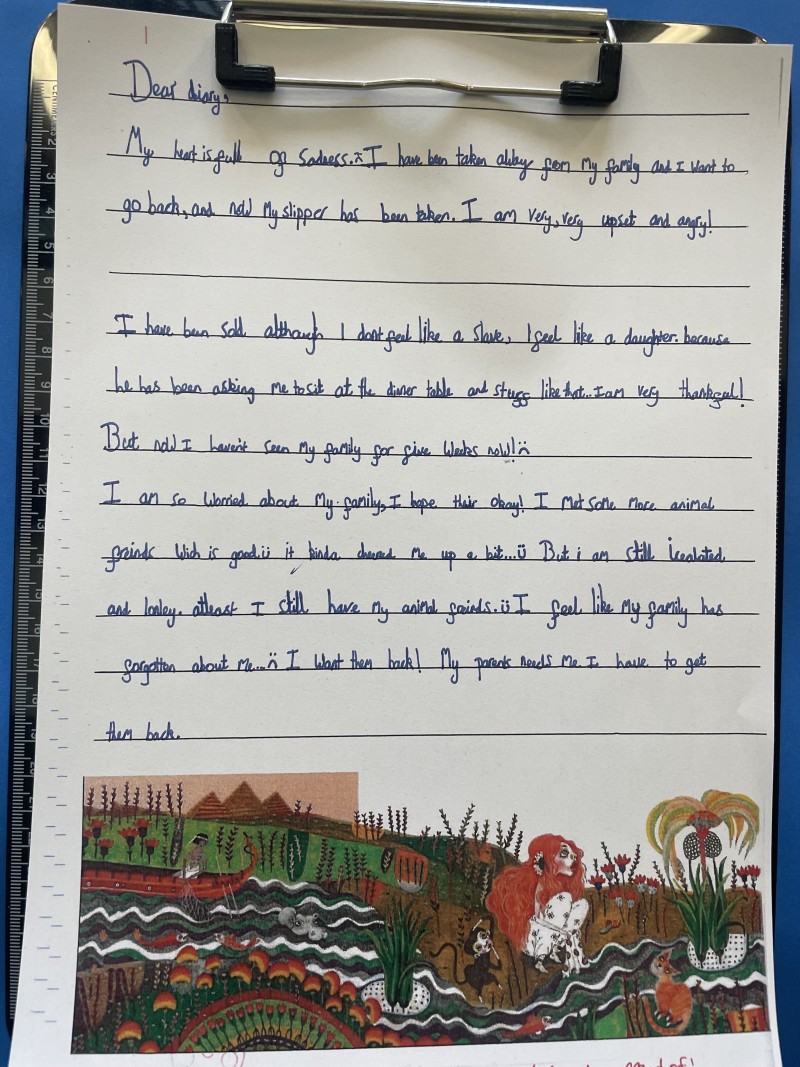 Dear diary,
My heart is full of sadness. I have been taken away from my family and I want to
go back, and now my slipper has been taken. I am very, very upset and angry!
I have been sold although I dont feel like a slave, I feel like a daughter. because
he has been asking me to sit at the dinner table and stuff like that... I am very thankful!
But now I haven't seen my family for five weeks now! :(
I am so worried about my family, I hope their okay! I met some more animal
freinds wich is good :) it kinda cheered me up a bit... :) But i am still icealated
and lonley. atleast I still have my animal freinds. :) I feel like my family has
forgotten about me... :( I want them back! My parents needs me I have to get
them back.